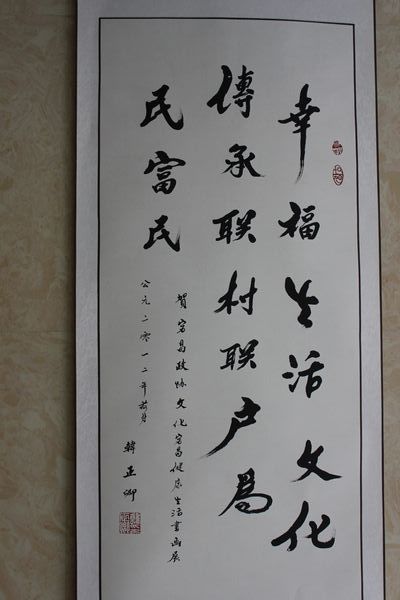 幸福生活文化
傳承联村联户為
民富民
賀宕昌政协文化宕昌健康生活書画展
公元二零一二年荷月
韓正卿